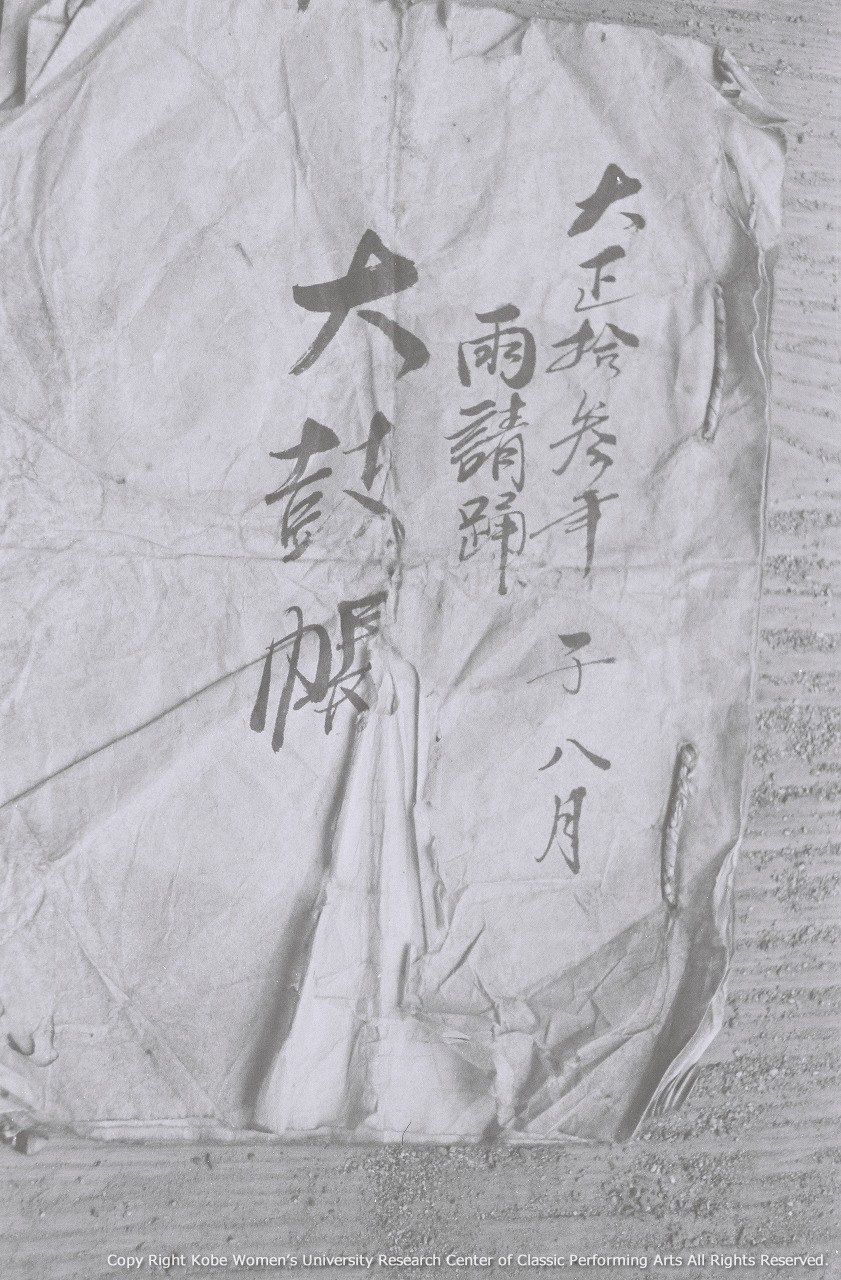 大正拾参年　子　八月
雨請踊
大鼓帳
Copy Right Kobe Women's University Research Center of Classic Performing Arts All Rights Reserved.